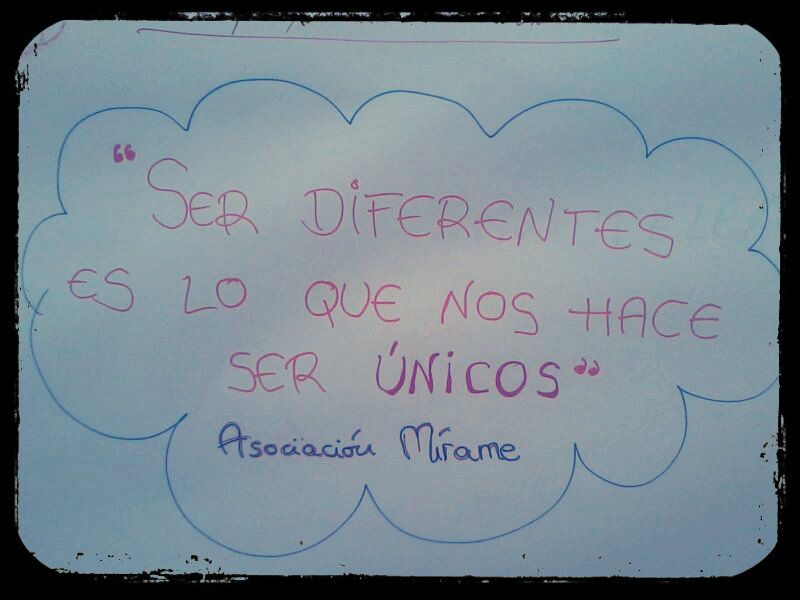 “SER DIFERENTES
ES LO QUE NOS HACE
SER ÚNICOS”
Asociación Mírame